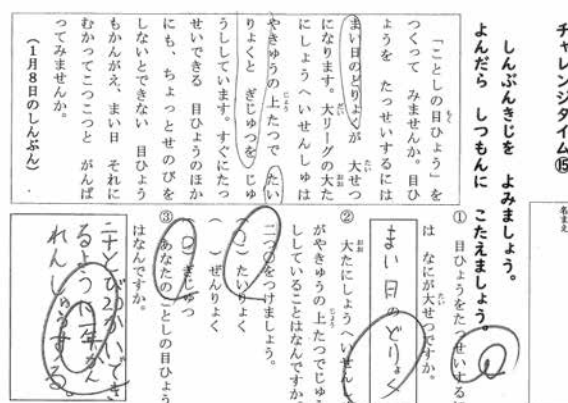 チャレンジタイム⑮
名まえ
しんぶんきじを よみましょう。
よんだら しつもんに こたえましょう。
「ことしの目ひょう」を
つくって みませんか。目ひ
ょうを たっせいするには
まい日のどりょくが 大せつ
になります。大リーグの大た
にしょうへいせんしゅは
やきゅうの上たつで たい
りょくと ぎじゅつを じゅ
うししています。すぐにたっ
せいできる 目ひょうのほか
にも、ちょっとせのびを
しないとできない 目ひょう
もかんがえ、まい日 それに
むかってこつこつと がんば
ってみませんか。
(1月8日のしんぶん)
① 目ひょうをたっせいするに
は なにが大せつですか。
まい日のどりょく
② 大たにしょうへいせんし
がやきゅうの上たつでじゅう
ししていることはなんですか。
二つ〇をつけましょう。
(〇)たいりょく
( )ぜんりょく
(〇)ぎじゅつ
③ あなたのことしの目ひょう
はなんですか。
二十とび20かいでき
るように一年かん
れんしゅうする。